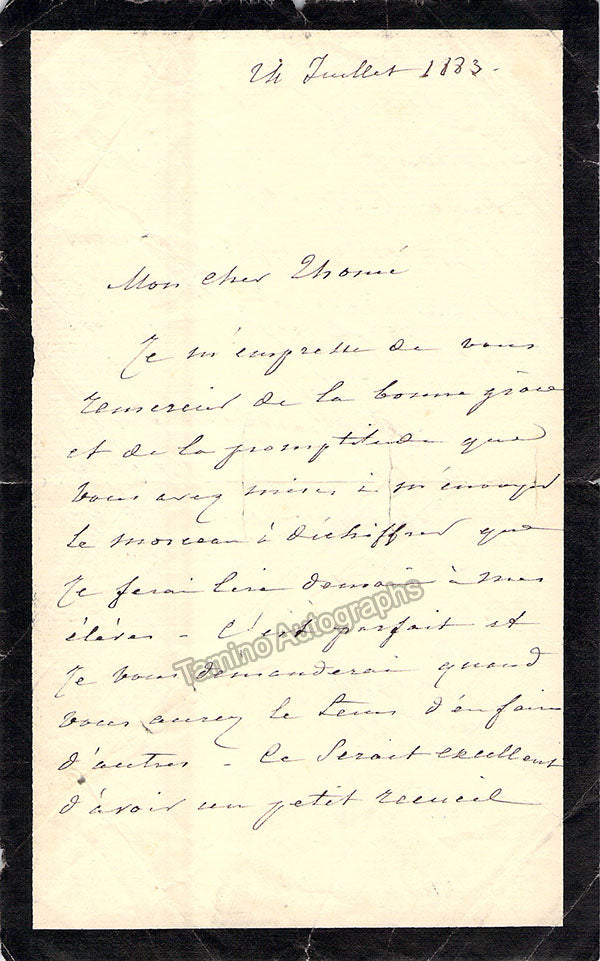 24 Juillet 1883.
Mon cher Thomé
Je m'empresse de vous
remercier de la bonne grâce
et de la promptitude que
vous avez mises à m'envoyer
le morceau à déchiffrer que
je ferai lire demain à mes
élèves - C'est parfait et
je vous demanderai quand
vous aurez le tems d'en faire
d'autres - Ce serait excellent
d'avoir un petit recueil
Tamino Autographs